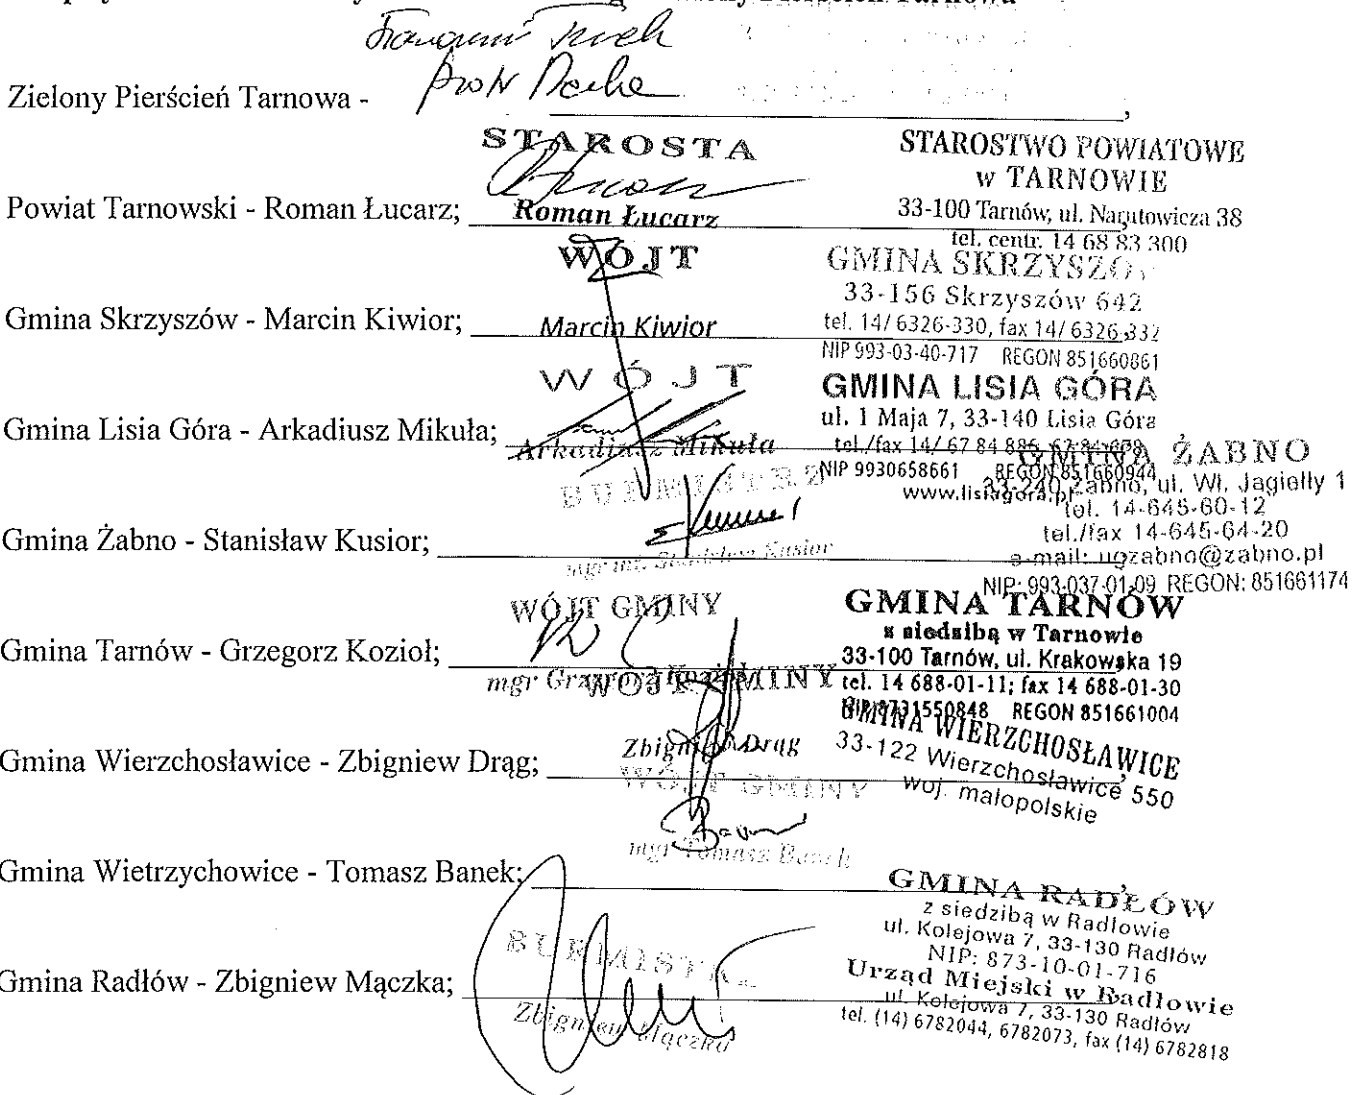 Zielony Pierścień Tarnowa -
,
STAROSTA
Powiat Tarnowski - Roman Łucarz;
Roman Łucarz
STAROSTWO POWIATOWE
w TARNOWIE
33-100 Tarnów, ul. Narutowicza 38
tel. centr. 14 68 83 300
WÓJT
Gmina Skrzyszów - Marcin Kiwior;
Marcin Kiwior
GMINA SKRZYSZÓW
33-156 Skrzyszów 642
tel. 14/ 6326-330, fax 14/ 6326-332
NIP 993-03-40-717 REGON 851660861
WÓJT
Gmina Lisia Góra - Arkadiusz Mikuła;
Arkadiusz Mikuła
GMINA LISIA GÓRA
ul. 1 Maja 7, 33-140 Lisia Góra
tel./fax 14/ 67 84 886,
NIP 9930658661 REGON 851660944
www.lisiagora.pl
BURMISTRZ
Gmina Żabno - Stanisław Kusior;
mgr inż. Stanisław Kusior
GMINA ŻABNO
33-240 Żabno, ul. Wł. Jagiełły 1
tel. 14-645-60-12
tel./fax 14-645-64-20
e-mail: ugzabno@zabno.pl
NIP: 993-037-01-09 REGON: 851661174
WÓJT GMINY
Gmina Tarnów - Grzegorz Kozioł;
mgr Grzegorz Kozioł
GMINA TARNÓW
z siedzibą w Tarnowie
33-100 Tarnów, ul. Krakowska 19
tel. 14 688-01-11; fax 14 688-01-30
NIP 8731550848 REGON 851661004
WÓJT GMINY
Gmina Wierzchosławice - Zbigniew Drąg;
Zbigniew Drąg
GMINA WIERZCHOSŁAWICE
33-122 Wierzchosławice 550
woj. małopolskie
WÓJT GMINY
Gmina Wietrzychowice - Tomasz Banek;
mgr Tomasz Banek
BURMISTRZ
Gmina Radłów - Zbigniew Mączka;
Zbigniew Mączka
GMINA RADŁÓW
z siedzibą w Radłowie
ul. Kolejowa 7, 33-130 Radłów
NIP: 873-10-01-716
Urząd Miejski w Radłowie
ul. Kolejowa 7, 33-130 Radłów
tel. (14) 6782044, 6782073, fax (14) 6782818